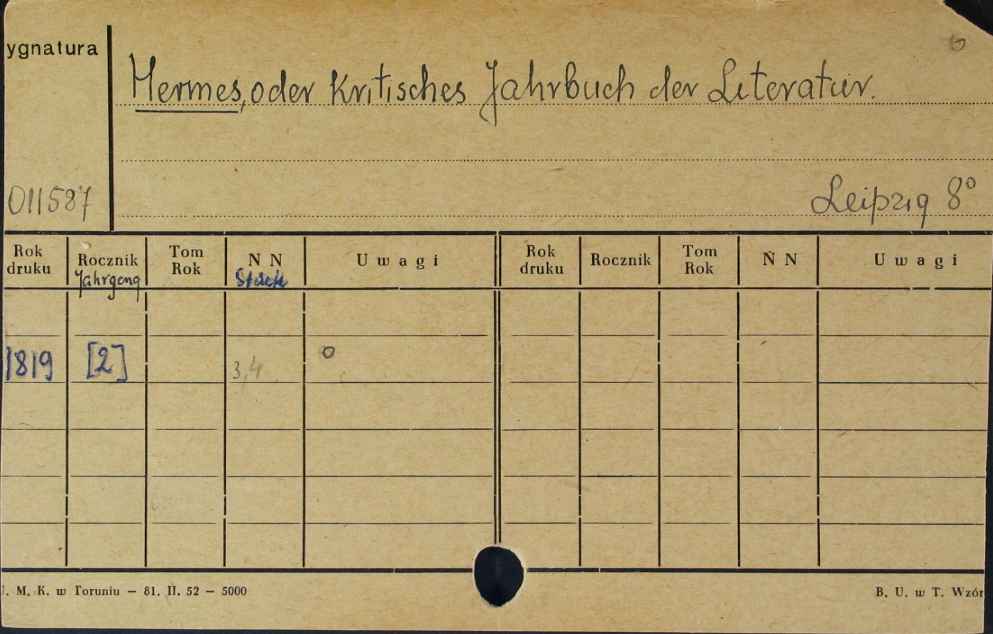 ygnatura
6
Hermes, oder Kritisches Jahrbuch der Literatur.
011587
Leipzig 8°
Rok druku Rocznik Tom Rok N N Uwagi Rok druku Rocznik Tom Rok N N Uwagi
Jahrgang Stück
1819 [2] 3,4 o
. M. K. w Toruniu — 81. II. 52 — 5000 B. U. w T. Wzór